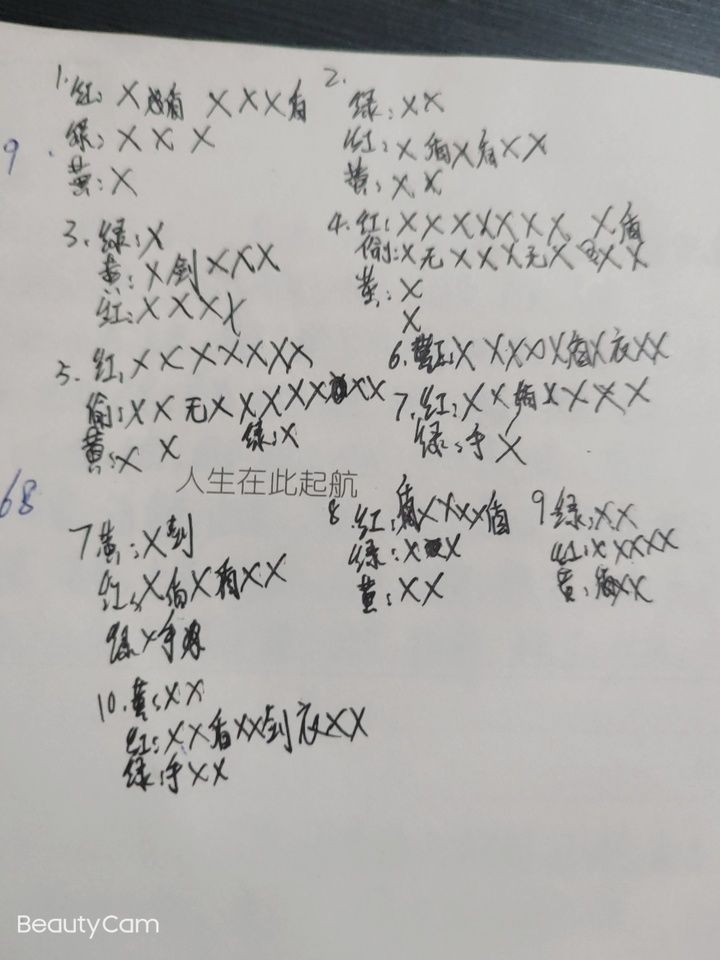 1. 红: X 盾 X X X 盾
绿: X X X
9.
黄: X
2.
绿: X X
红: X 盾 X 盾 X X
黄: X X
3. 绿: X
黄: X 剑 X X X
红: X X X X
4. 红: X X X X X X X X 盾
偷: X 无 X X X 无 X X X
黄: X
X
5. 红: X X X X X X X
偷: X X 无 X X X X X X X X
黄: X X
绿: X
6. X X X X X 盾 X 衣 X X
7. 红: X X 盾 X X X X
绿: 手 X
人生在此起航
68
7 黄: X 剑
红: X 盾 X 盾 X X
绿 X 手
8. 红: 盾 X X X X 盾
绿: X X
黄: X X
9. 绿: X X
红: X X X X X
黄: 盾 X X
10. 黄: X X
红: X X 盾 X X 剑 衣 X X
绿: 手 X X
BeautyCam